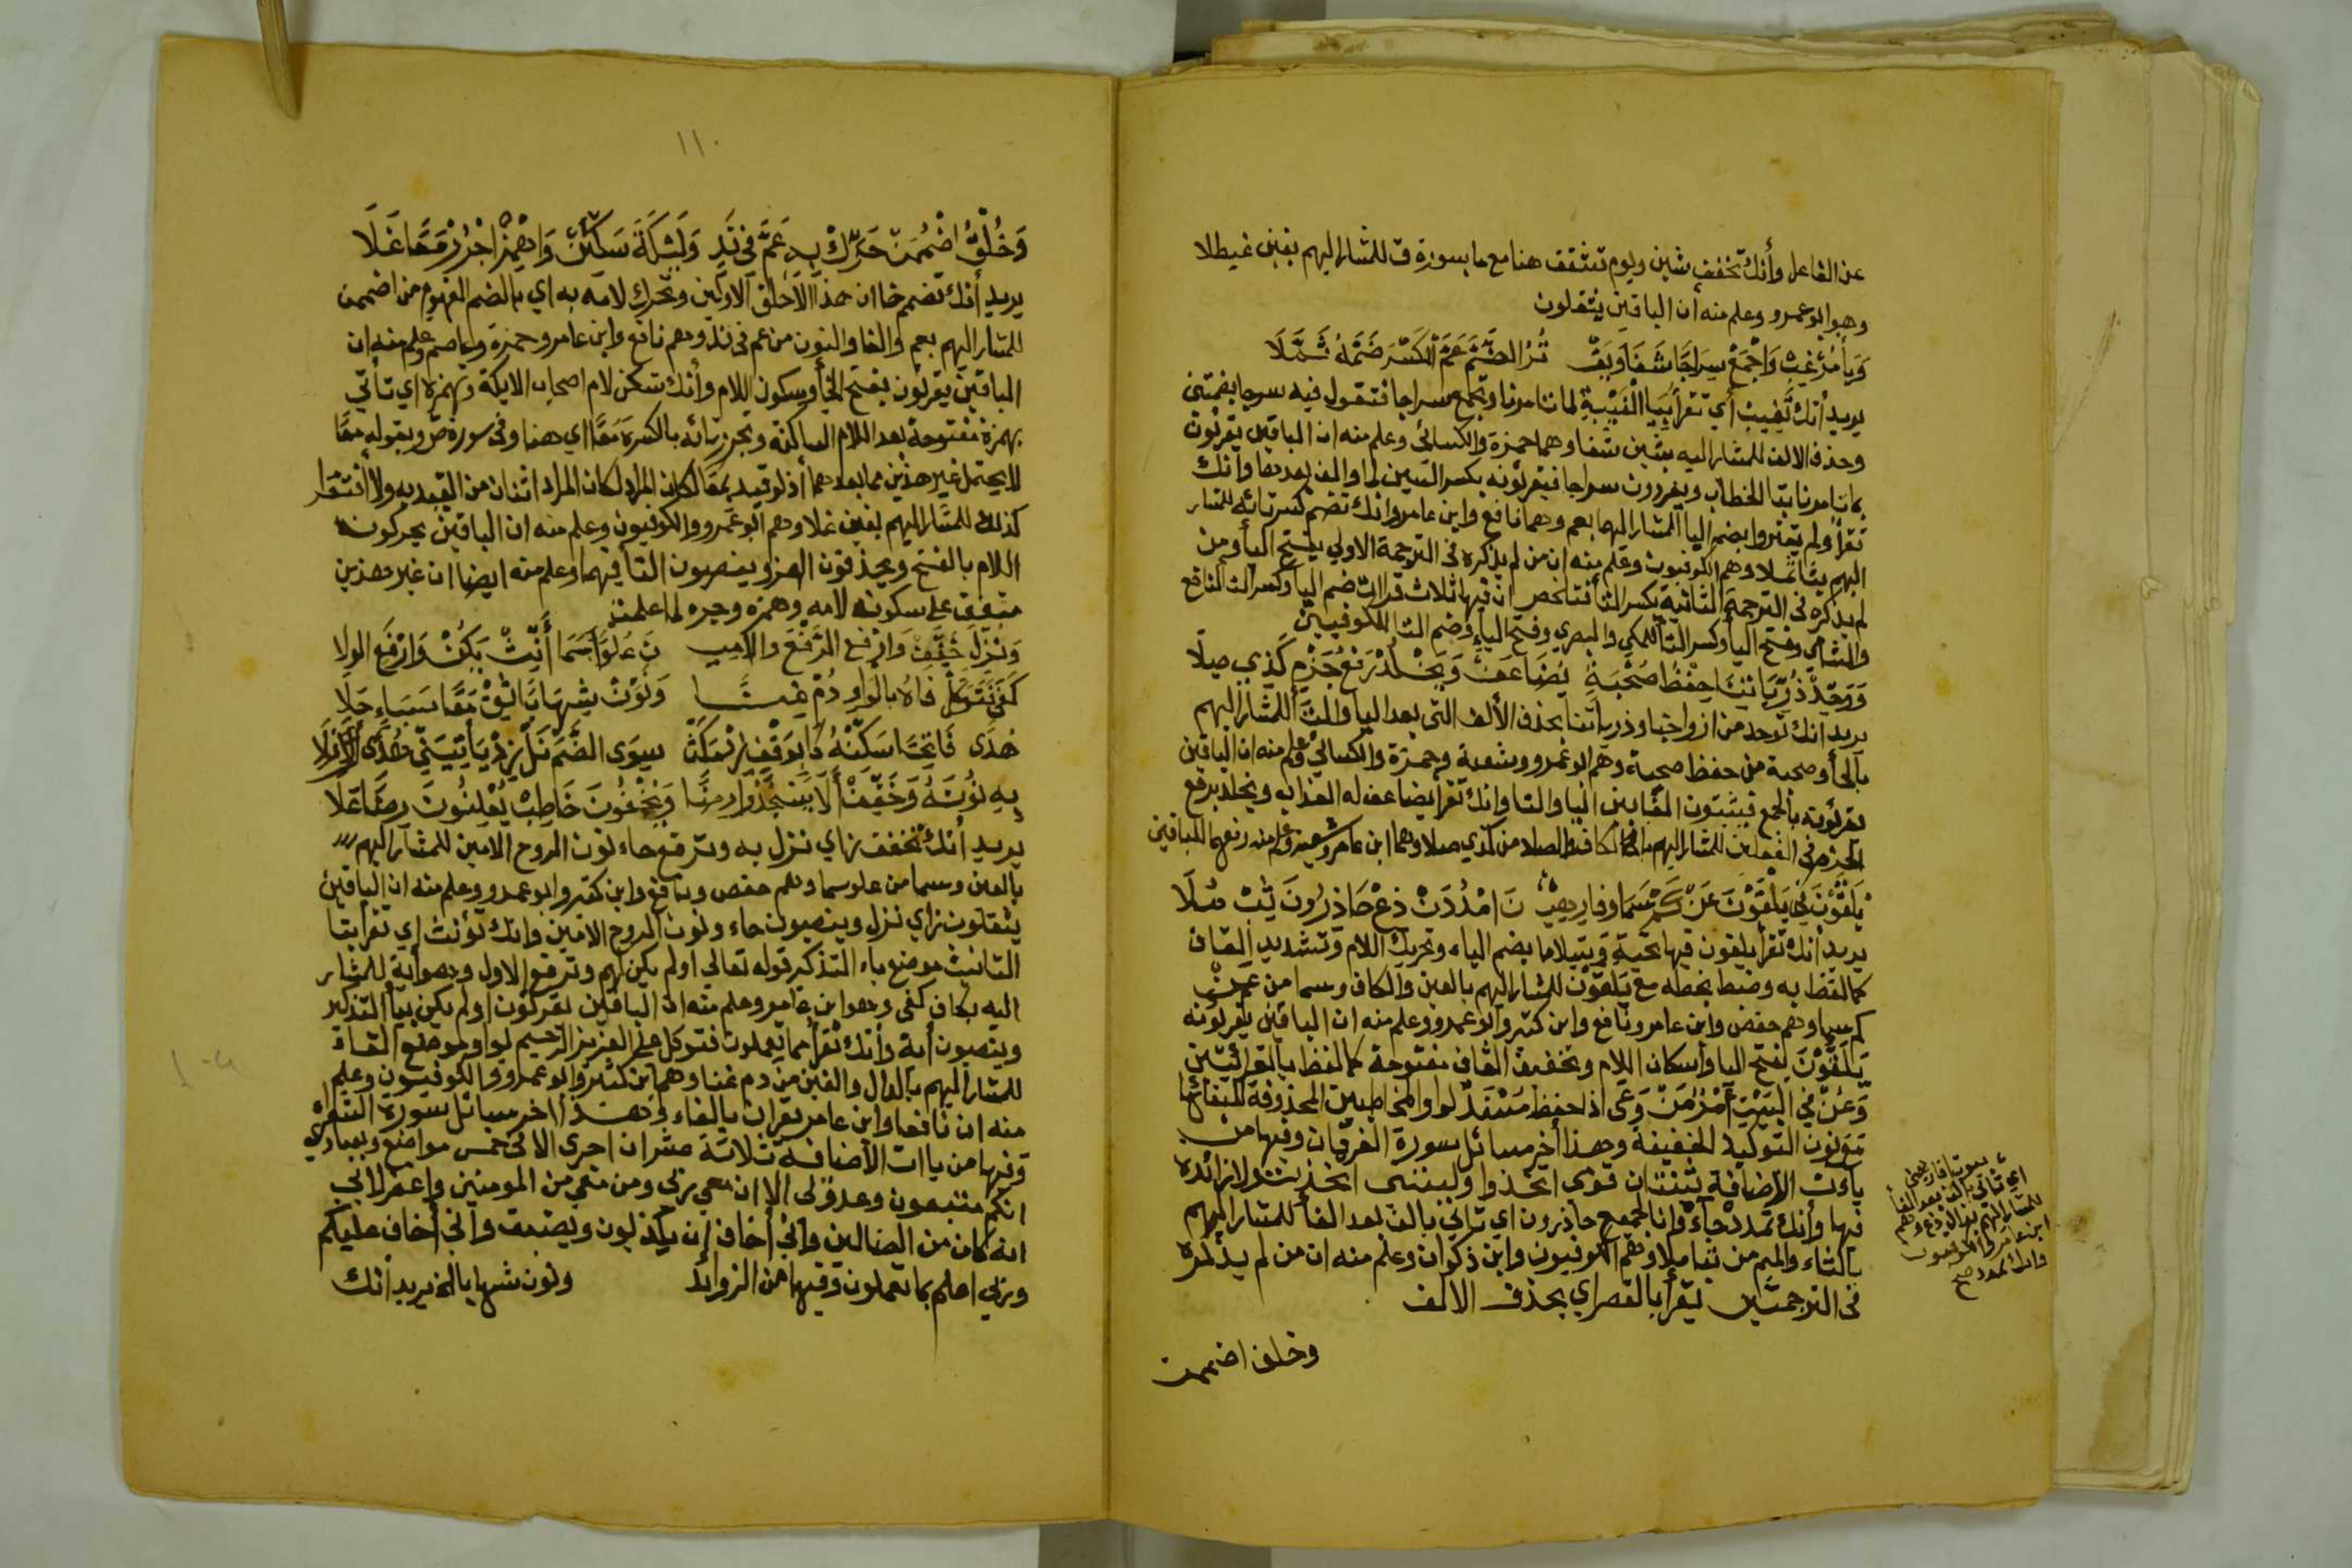 عن الفاعل وأنك تخفف شين ويوم تشقق هنا مع ما بسورة ق للمشار اليهم بغين غيطلا
وهو ابو عمرو وعلم منه أن الباقين يثقلون
وَيَأْمُرُ غِبْ وَاجْمَعْ سِرَاجًا شَفَا وَيَقْ تُرُ الضَّمَّ عَمَّ الْكَسْرَ ضَمَّهُ ثَمَّلَا
يريد أنك تغيب أي تقرأ بيا الغيبة لما تامرنا وتجمع سراجا فتقول فيه سرجا بضمتين
وحذف الالف للمشار اليه بشين شفا وهما حمزة والكسائى وعلم منه ان الباقين يقرئون
بما تامرنا بتا الخطاب ويفردون سراجا فيقرئونه بكسر السين لما والف بعدها وأنك
تقرأ ولم يقتروا بضم اليا المشار اليهما بعم وهما نافع وابن عامر وانك تضم كسرتائه للمشار
اليهم بثا ثملا وهم الكوفيون وعلم منه ان من لم يذكره فى الترجمة الاولي بفتح اليأ ومن
لم يذكره فى الترجمة الثانية بكسر التأ فتلخص ان فيها ثلاث قراات ضم اليا وكسر التا لنافع
والشامى وفتح اليأ وكسر التأ للمكي والبصري وفتح الياء وضم التا للكوفيين
وَوَحِّدْ ذُرِّيَاتِنَا حِفْظُ صُحْبَةٍ يُضَاعَفْ وَيَخْلُدْ رَفْعُ جَزْمٍ كَذِي صِلَا
يريد انك توحد من ازواجنا وذرياتنا بحذف الألف التى بعد اليا والتأ للمشار اليهم
بالحأ وصحبة من حفظ صحبة وهم ابو عمرو وشعبة وحمزة والكسائي وعلم منه ان الباقين
يقرئونه بالجمع فيثبتون الفا بين اليا والتا وانك تقرأ يضاعف له العذاب ويخلد برفع
الجزم فى الفعلين للمشار اليهم بالكاف والصلا من كذي صلا وهما ابن عامر وشعبة وعلم منه رفعهما للباقين
يُلَقَّوْنَ فِي يَلْقَوْنَ عَنْ كَمْ سَمَا وفارهين نَ امْدُدَنْ ذعْ حَاذِرُونَ ثِبْ مُلَا
يريد أنك تقرأ يلقون فيها تحية وسلاما بضم الياء وتحريك اللام وتشديد القاف
كما لفظ به وضبط بخطه مع يَلْقَوْن للمشار اليهم بالعين والكاف وسما من عن
كم سما وهم حفص وابن عامر ونافع وابن كثير وابو عمرو وعلم منه ان الباقين يقرئونه
يَلْقَوْنَ بفتح اليا وأسكان اللام وتخفيف القاف مفتوحة كما لفظ بالقرائتين
وَعُنّ في الْبَيْت امْدُدَنْ وَعَى اذ احفظ مستقد لواو المخاطبين المحذوفة لالتقائها
مع نون التوكيد الخفيفة وهذا أخر مسائل سورة الفرقان وفيها من
ياءت الاضافة ثنتان قومى اتخذوا وليتنى اتخذت ولا زائدة
فيها وأنك تمدد حاء وانا لجميع حاذرون اي تاتي بالف بعد الفأ للمشار اليهم
بالثاء والميم من ثب ملا وهم الكوفيون وابن ذكوان وعلم منه ان من لم يذكره
فى الترجمتين تقرأ بالقصراي بحذف الالف
وخلق اضممن
اي تاتي بالف بعد الفأ
للمشار اليهم بذال ذع وهم
ابن عامر والكوفيون
وانك تمدد صح
١١٠
وَخُلْقُ اضْمُمَنْ حَرِّكْ بِهِ عَمَّ فِى نَدٍ وَلَيْكَةَ سَكِّنْ وَاهْمِزْ اجْرُرْ مَعًا غَلَا
يريد أنك تضم خا ان هذا الاخلق الاولين وتحرك لامه به اي بالضم المفهوم من اضممن
للمشار اليهم بعم والفا والنون من عم فى ند وهم نافع وابن عامر وحمزة وعاصم وعلم منه ان
الباقين يقرئون بفتح الخأ وسكون اللام وأنك تسكن لام اصحاب الايكة وتهمزه اي تأتي
بهمزة مفتوحة بعد اللام الساكنة وتجرر تائه بالكسرة مَعًا اي هنا وفى سورة ص وبقوله معًا
لا يحتمل غير هذين مما بعدهما أذ لو قيد بمعًا لكان المراد لكان المراد اثنان من القيد به ولا افتقار
كذلك للمشار اليهم بغين غلا وهم ابو عمرو والكوفيون وعلم منه ان الباقين يحركون
اللام بالفتح ويحذفون الهمز وينصبون التأ فيهما وعلم منه ايضا ان غير هذين
متفق على سكون لامه وهمزه وجره لما علمت
وَنَزَّلَ خَفِّفْ وَارْفَعِ الرَّفْعَ والامين نَ عُلُوًّا سَمَا أَنِّثْ يَكُنْ وَارْفَعِ الولا
كَفَى فَتَوَكَّلْ فَاهُ بِالْوَاوِ دُمْ غِنًى وَنَوِّنْ شِهَابٍ ثِقْ مَعًا سَبَاءٍ حَلَا
هُدًى فَاتِحًا سَكِّنْهُ سِوَى الضَّمِّ نَلْ يَأْتِيَنِّي
بِهِ نُونُهُ وَخَفِّفْ أَلَا يَسْجُدُوا رِضًا وَيُخْفُونَ خَاطِبْ يُعْلِنُونَ رِضًا عَلَا
يريد أنك تخفف زاي نزل به وترفع حاء نون الروح الامين للمشار اليهم
بالعين وسما من علو سما وهم حفص ونافع وابن كثير وابو عمرو وعلم منه ان الباقين
يثقلون زاي نزل وينصبون حاء ونون الروح الامين وانك تؤنث اي تقرأ بتا
التانيث موضع ياء التذكير قوله تعالي اولم يكن لهم وترفع الاول وهو أية للمشار
اليه بكاف كفى وهو ابن عامر وعلم منه ان الباقين يقرئون اولم يكن بيا التذكير
وينصبون أية وأنك تقرأ مما يعملون فتوكل على العزيز الرحيم بواو موضع الفاء
للمشار اليهم بالدال والغين من دم غنا وهم ابن كثير وابو عمرو والكوفيون وعلم
منه ان نافعا وابن عامر يقرأن بالفاء وهذا اخر مسائل سورة الشعراء
وفيها من ياات الأضافة ثلاثة عشر ان اجرى الا فى خمس مواضع وبعبادي
انكم متبعون وعدو لى الا ان معي ربى ومن معي من المومنين واغفر لابي
انه كان من الضالين وانى أخاف ان يكذبون ويضيق وانى أخاف عليكم
وربي اعلم بما تعملون وفيها من الزوائد ونون شهابا لخ يريد أنك